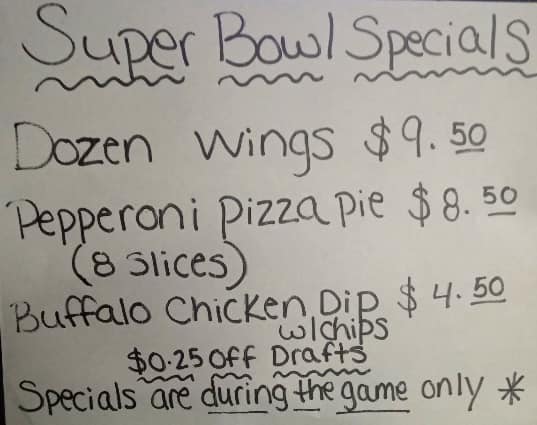 Super Bowl Specials
Dozen Wings $9.50
Pepperoni Pizza Pie $8.50
(8 Slices)
Buffalo Chicken Dip $4.50
w/chips
$0.25 off Drafts
Specials are during the game only *